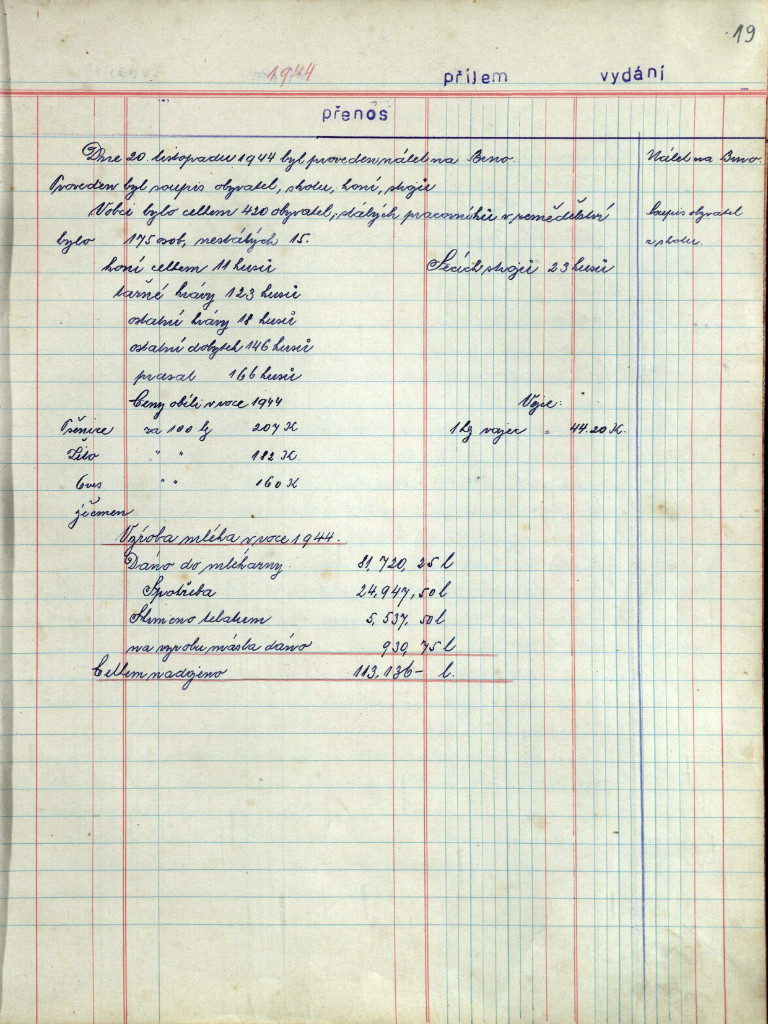 19
1944 příjem vydání
přenos
Dne 20. listopadu 1944 byl proveden nálet na Brno. Nálet na Brno.
Proveden byl soupis obyvatel, skotu, koní, strojů
V obci bylo celkem 420 obyvatel, stálých pracovníků v zemědělství Soupis obyvatel
bylo 175 osob, nestálých 15. a skotu.
koní celkem 11 kusů Secích strojů 23 kusů
tažné krávy 123 kusů
ostatní krávy 18 kusů
ostatní dobytek 146 kusů
prasat 166 kusů
Ceny obilí v roce 1944 Vejce:
Pšenice za 100 kg 207 K 1 kg vajec = 44.20 K.
Žito " " 182 K
Oves " " 160 K
ječmen
Výroba mléka v roce 1944.
Dáno do mlékarny 81,720, 25 l
Spotřeba 24,947, 50 l
Krmeno telatum 5,537, 50 l
na vyrobu másla dáno 930, 75 l
Celkem nadojeno 113,136 - l.